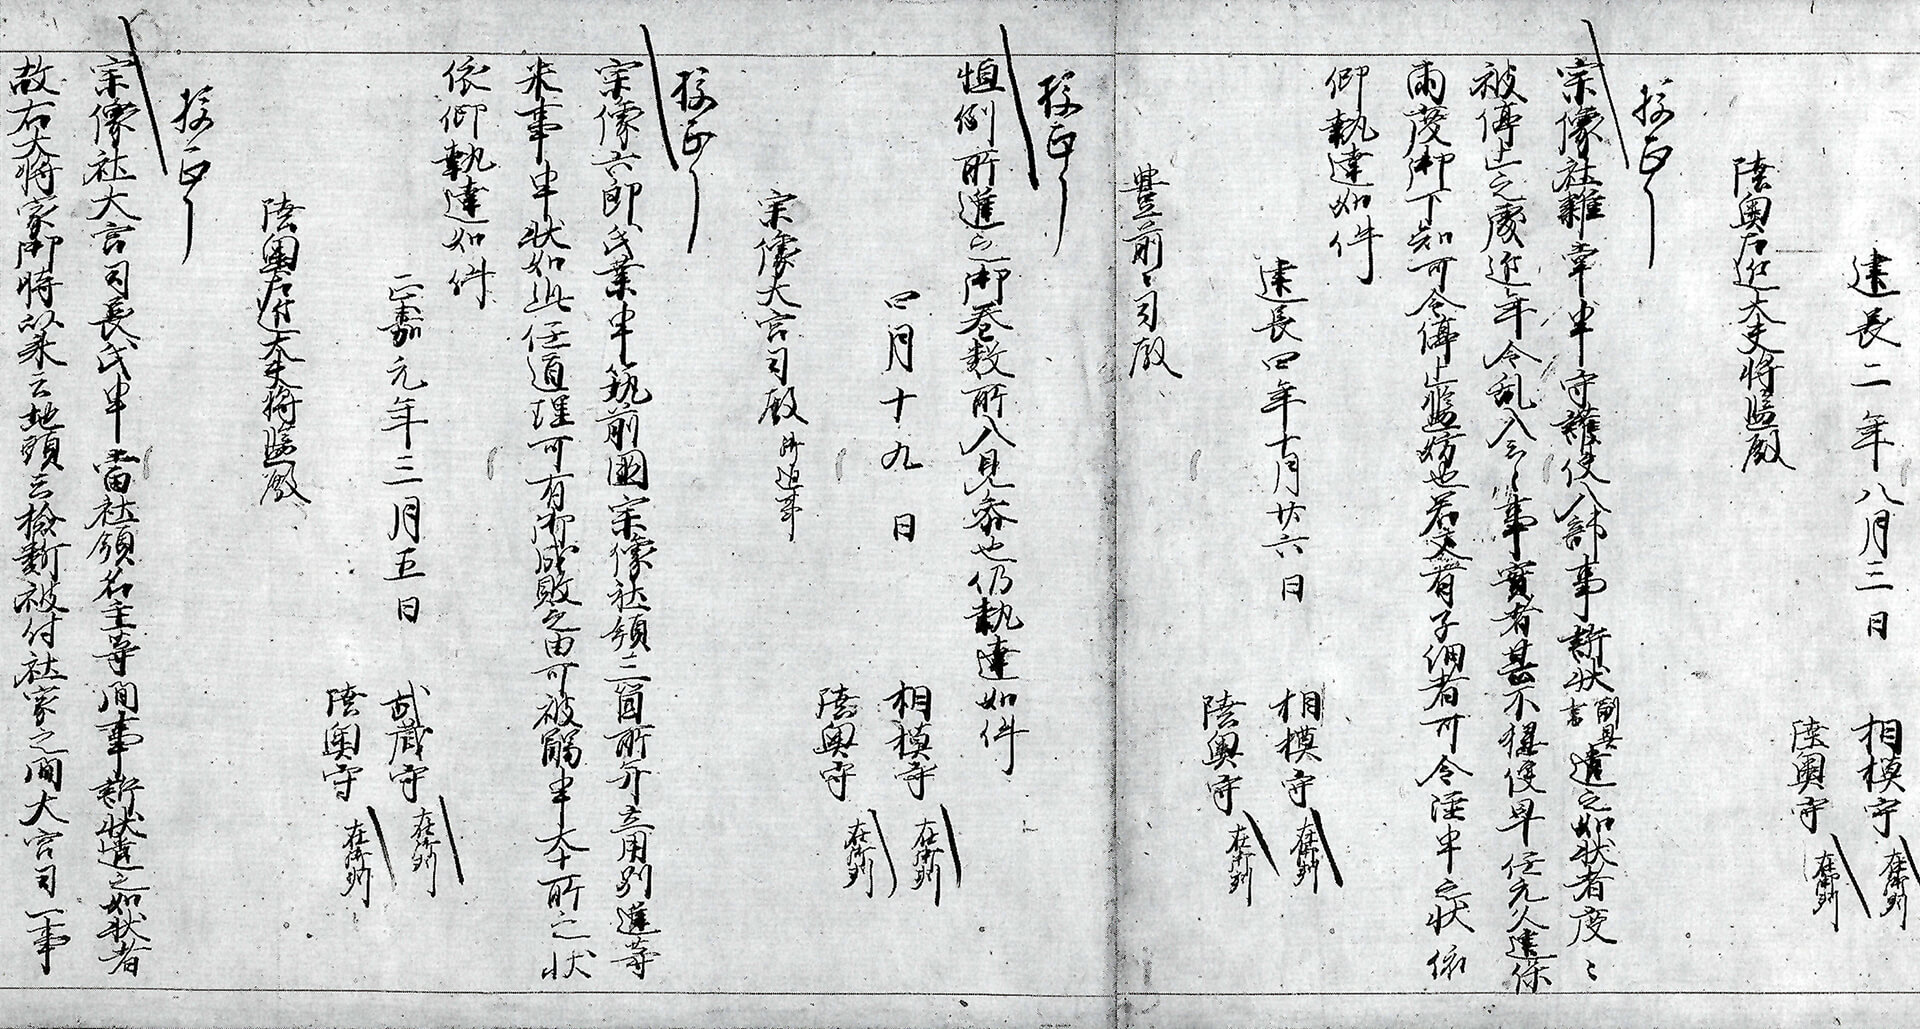 建長二年八月三日
相模守 在御判
陸奥守 在御判
陸奥左近大夫将監殿
校正了
宗像社雑掌申守護使入部事訴状 副具書 遣之如状者度々
被停止之處近年令乱入云々事實者甚不穏便早任元久建保
両度御下知可令停止濫妨也若又有子細者可令注申之状依
仰執達如件
建長四年十月廿六日
相模守 在御判
陸奥守 在御判
豊前々司殿
校正了
恒例所進之御巻数所入見参也仍執達如件
四月十九日
相模守 在御判
陸奥守 在御判
宗像大宮司殿 御返事
校正了
宗像六郎氏業申筑前國宗像社領三箇所弁立用別進等
米事申状如此任道理可有御成敗之由可被觸申大十所之状
依仰執達如件
正嘉元年三月五日
武蔵守 在御判
陸奥守 在御判
陸奥左近大夫将監殿
校正了
宗像社大宮司長氏申當社領名主等間事訴状遣之如状者
故右大将家御時以来云地頭云検断被付社家之間大宮司一事